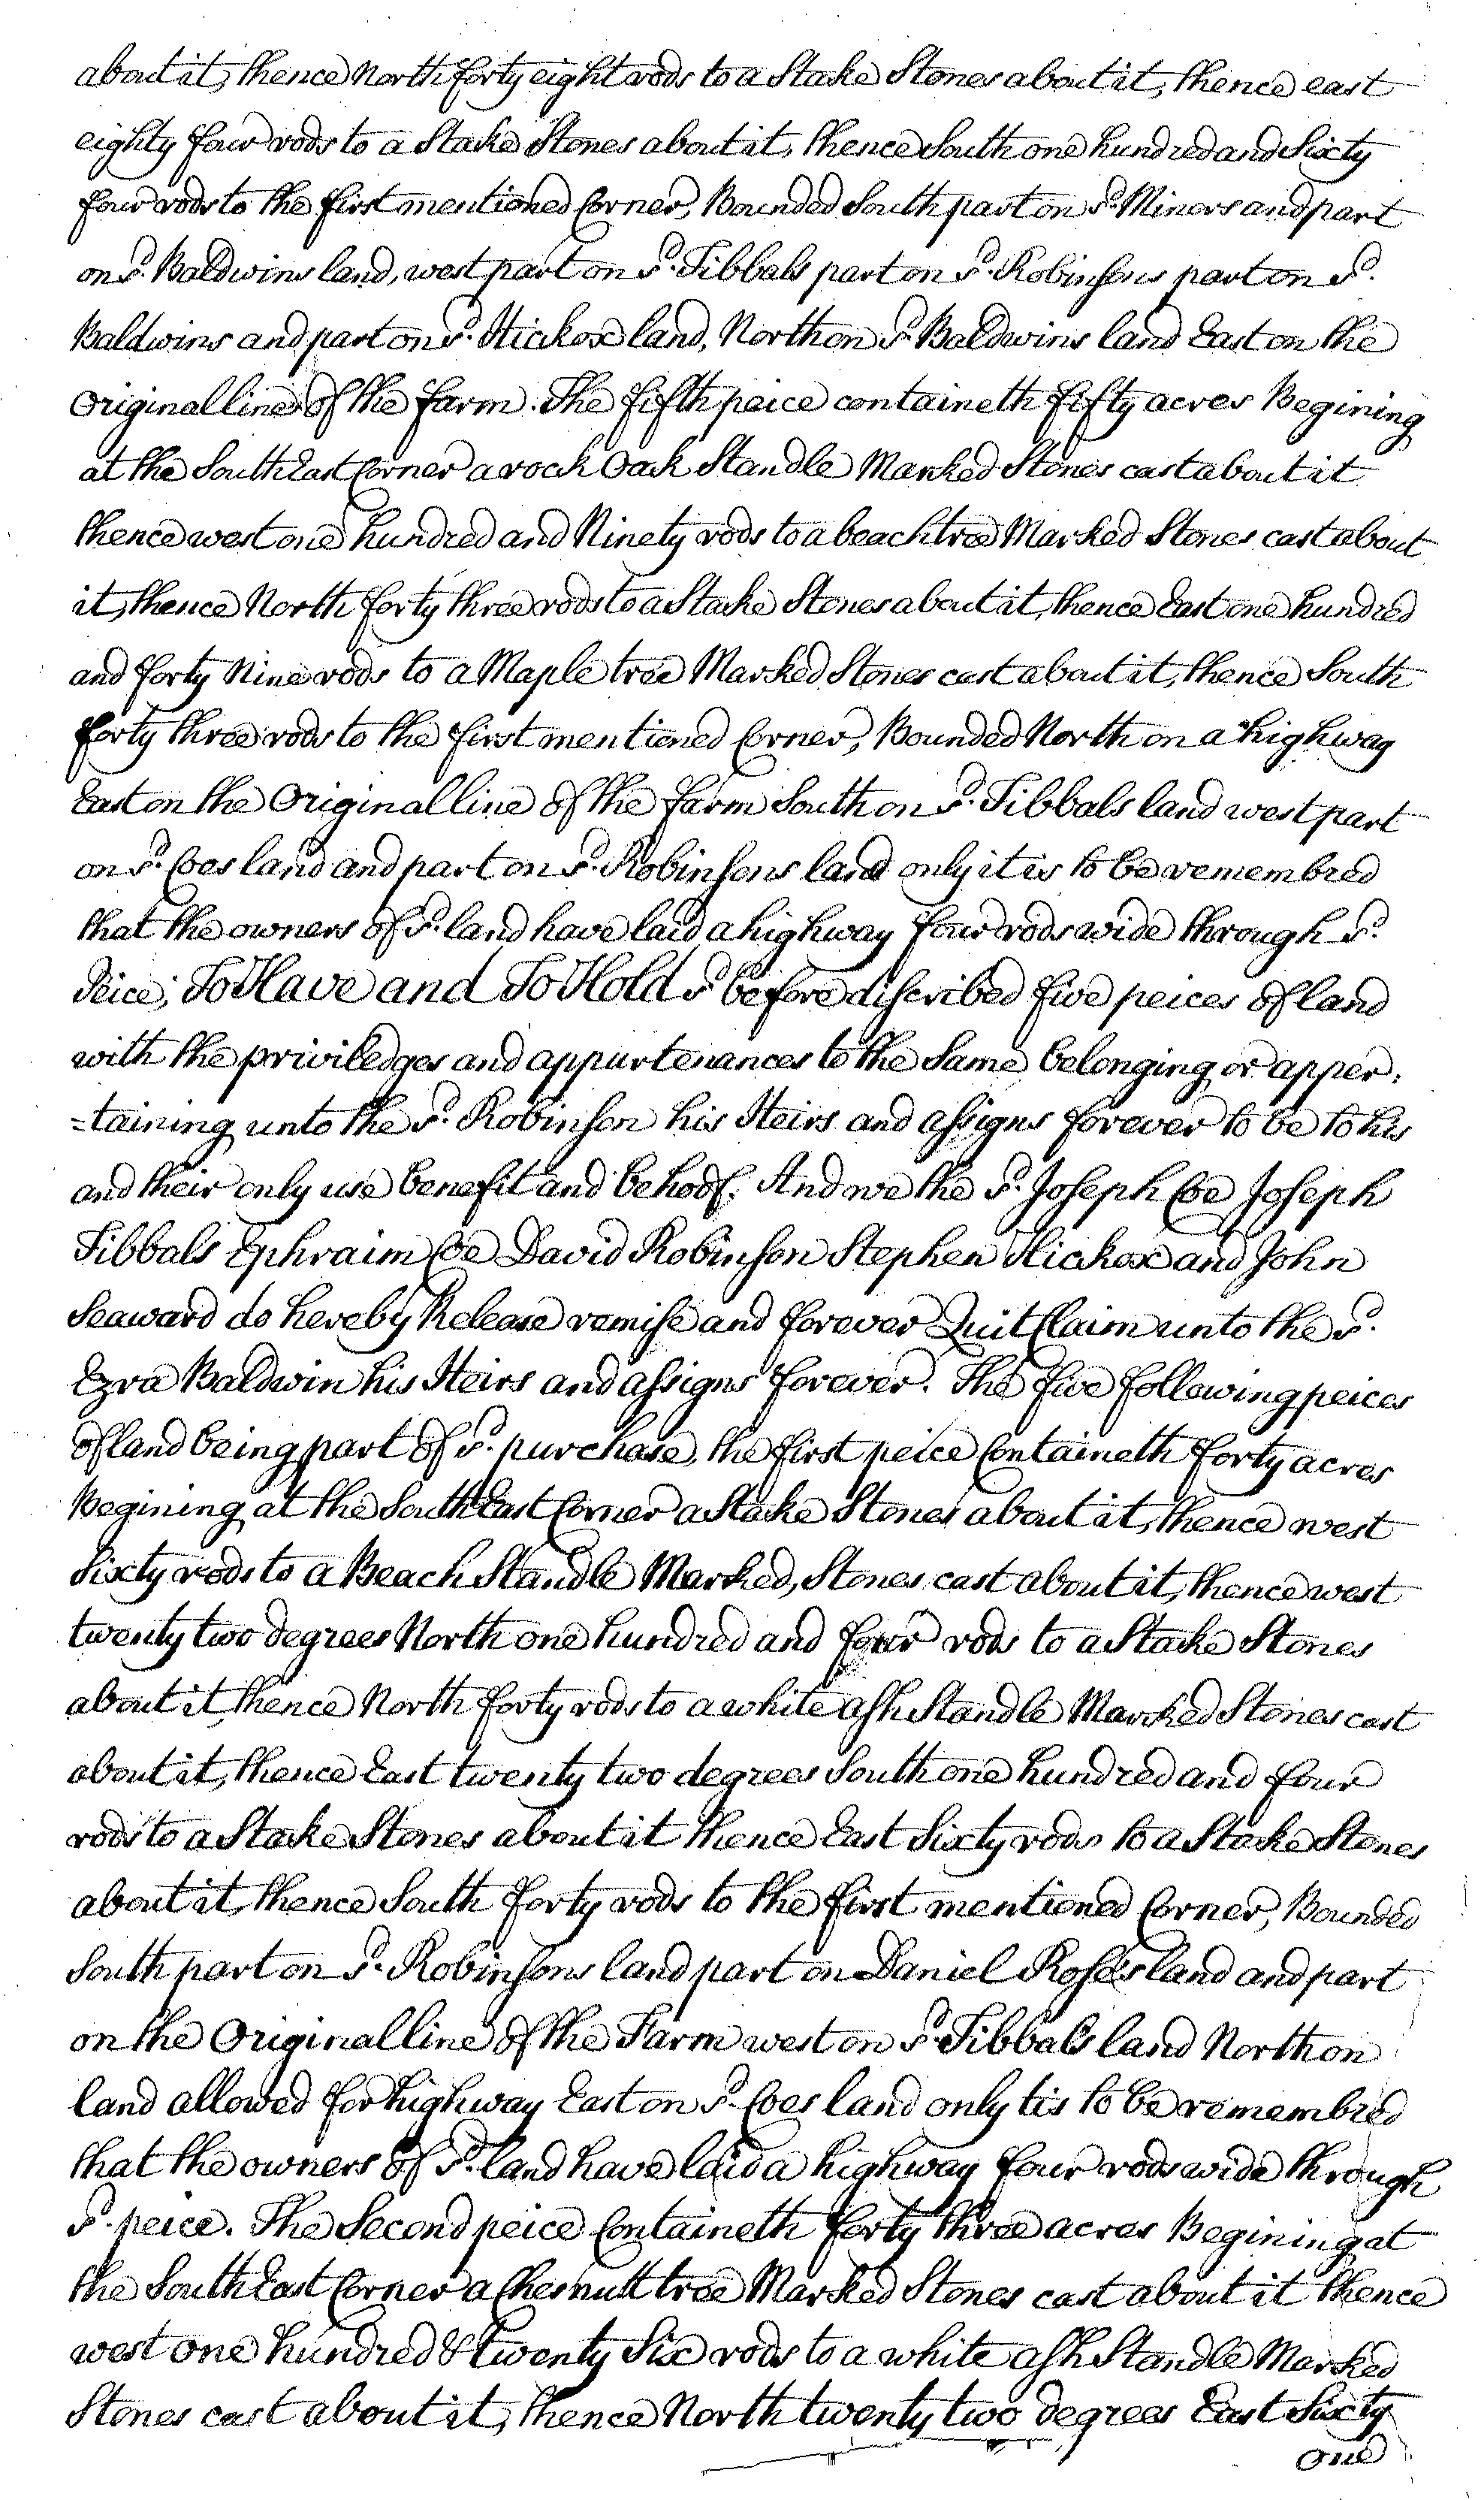 about it, thence North forty eight rods to a Stake Stones about it, thence east
eighty four rods to a Stake Stones about it, thence South one hundred and Sixty
four rods to the first mentioned Corner, Bounded South part on sd. Miners and part
on sd. Baldwins land, west part on sd. Tibbals part on sd. Robinsons part on sd.
Baldwins and part on sd. Hickox land, North on sd. Baldwins land East on the
Original line of the farm. The fifth peice containeth fifty acres Begining
at the South East Corner a rock Oak Standle Marked Stones cast about it
thence west one hundred and Ninety rods to a beach tree Marked Stones cast about
it, thence North forty three rods to a Stake Stones about it, thence East one hundred
and forty Nine rods to a Maple tree Marked Stones cast about it, thence South
forty three rods to the first mentioned Corner, Bounded North on a highway
East on the Original line of the farm South on sd. Tibbals land west part
on sd. Coes land and part on sd. Robinsons land only it is to be remembred
that the owners of sd. land have laid a highway four rods wide through sd.
Peice; To Have and To Hold sd before discribed five peices of land
with the priviledges and appurtenances to the Same belonging or apper:
=taining unto the sd. Robinson his Heirs and assigns forever to be to his
and their only use benefit and behoof. And we the sd. Joseph Coe Joseph
Tibbals Ephraim Coe David Robinson Stephen Hickox and John
Seaward do hereby Release remise and forever Quit Claim unto the sd.
Ezra Baldwin his Heirs and assigns forever. The five following peices
of land being part of sd. purchase, the first peice Containeth forty acres
Begining at the South East Corner a Stake Stones about it, thence west
Sixty rods to a Beach Standle Marked, Stones cast about it, thence west
twenty two degrees North one hundred and four rods to a Stake Stones
about it, thence North forty rods to a white ash Standle Marked Stones cast
about it, thence East twenty two degrees South one hundred and four
rods to a Stake Stones about it thence East Sixty rods to a Stake Stones
about it, thence South forty rods to the first mentioned Corner, Bounded
South part on sd. Robinsons land part on Daniel Roses land and part
on the Original line of the Farm west on sd. Tibbals land North on
land allowed for highway East on sd. Coes land only tis to be remembred
that the owners of sd. land have laid a highway four rods wide through
sd. peice. The Second peice Containeth forty three acres Begining at
the South East Corner a Chesnutt tree Marked Stones cast about it thence
west one hundred & twenty Six rods to a white ash Standle Marked
Stones cast about it, thence North twenty two degrees East Sixty
one